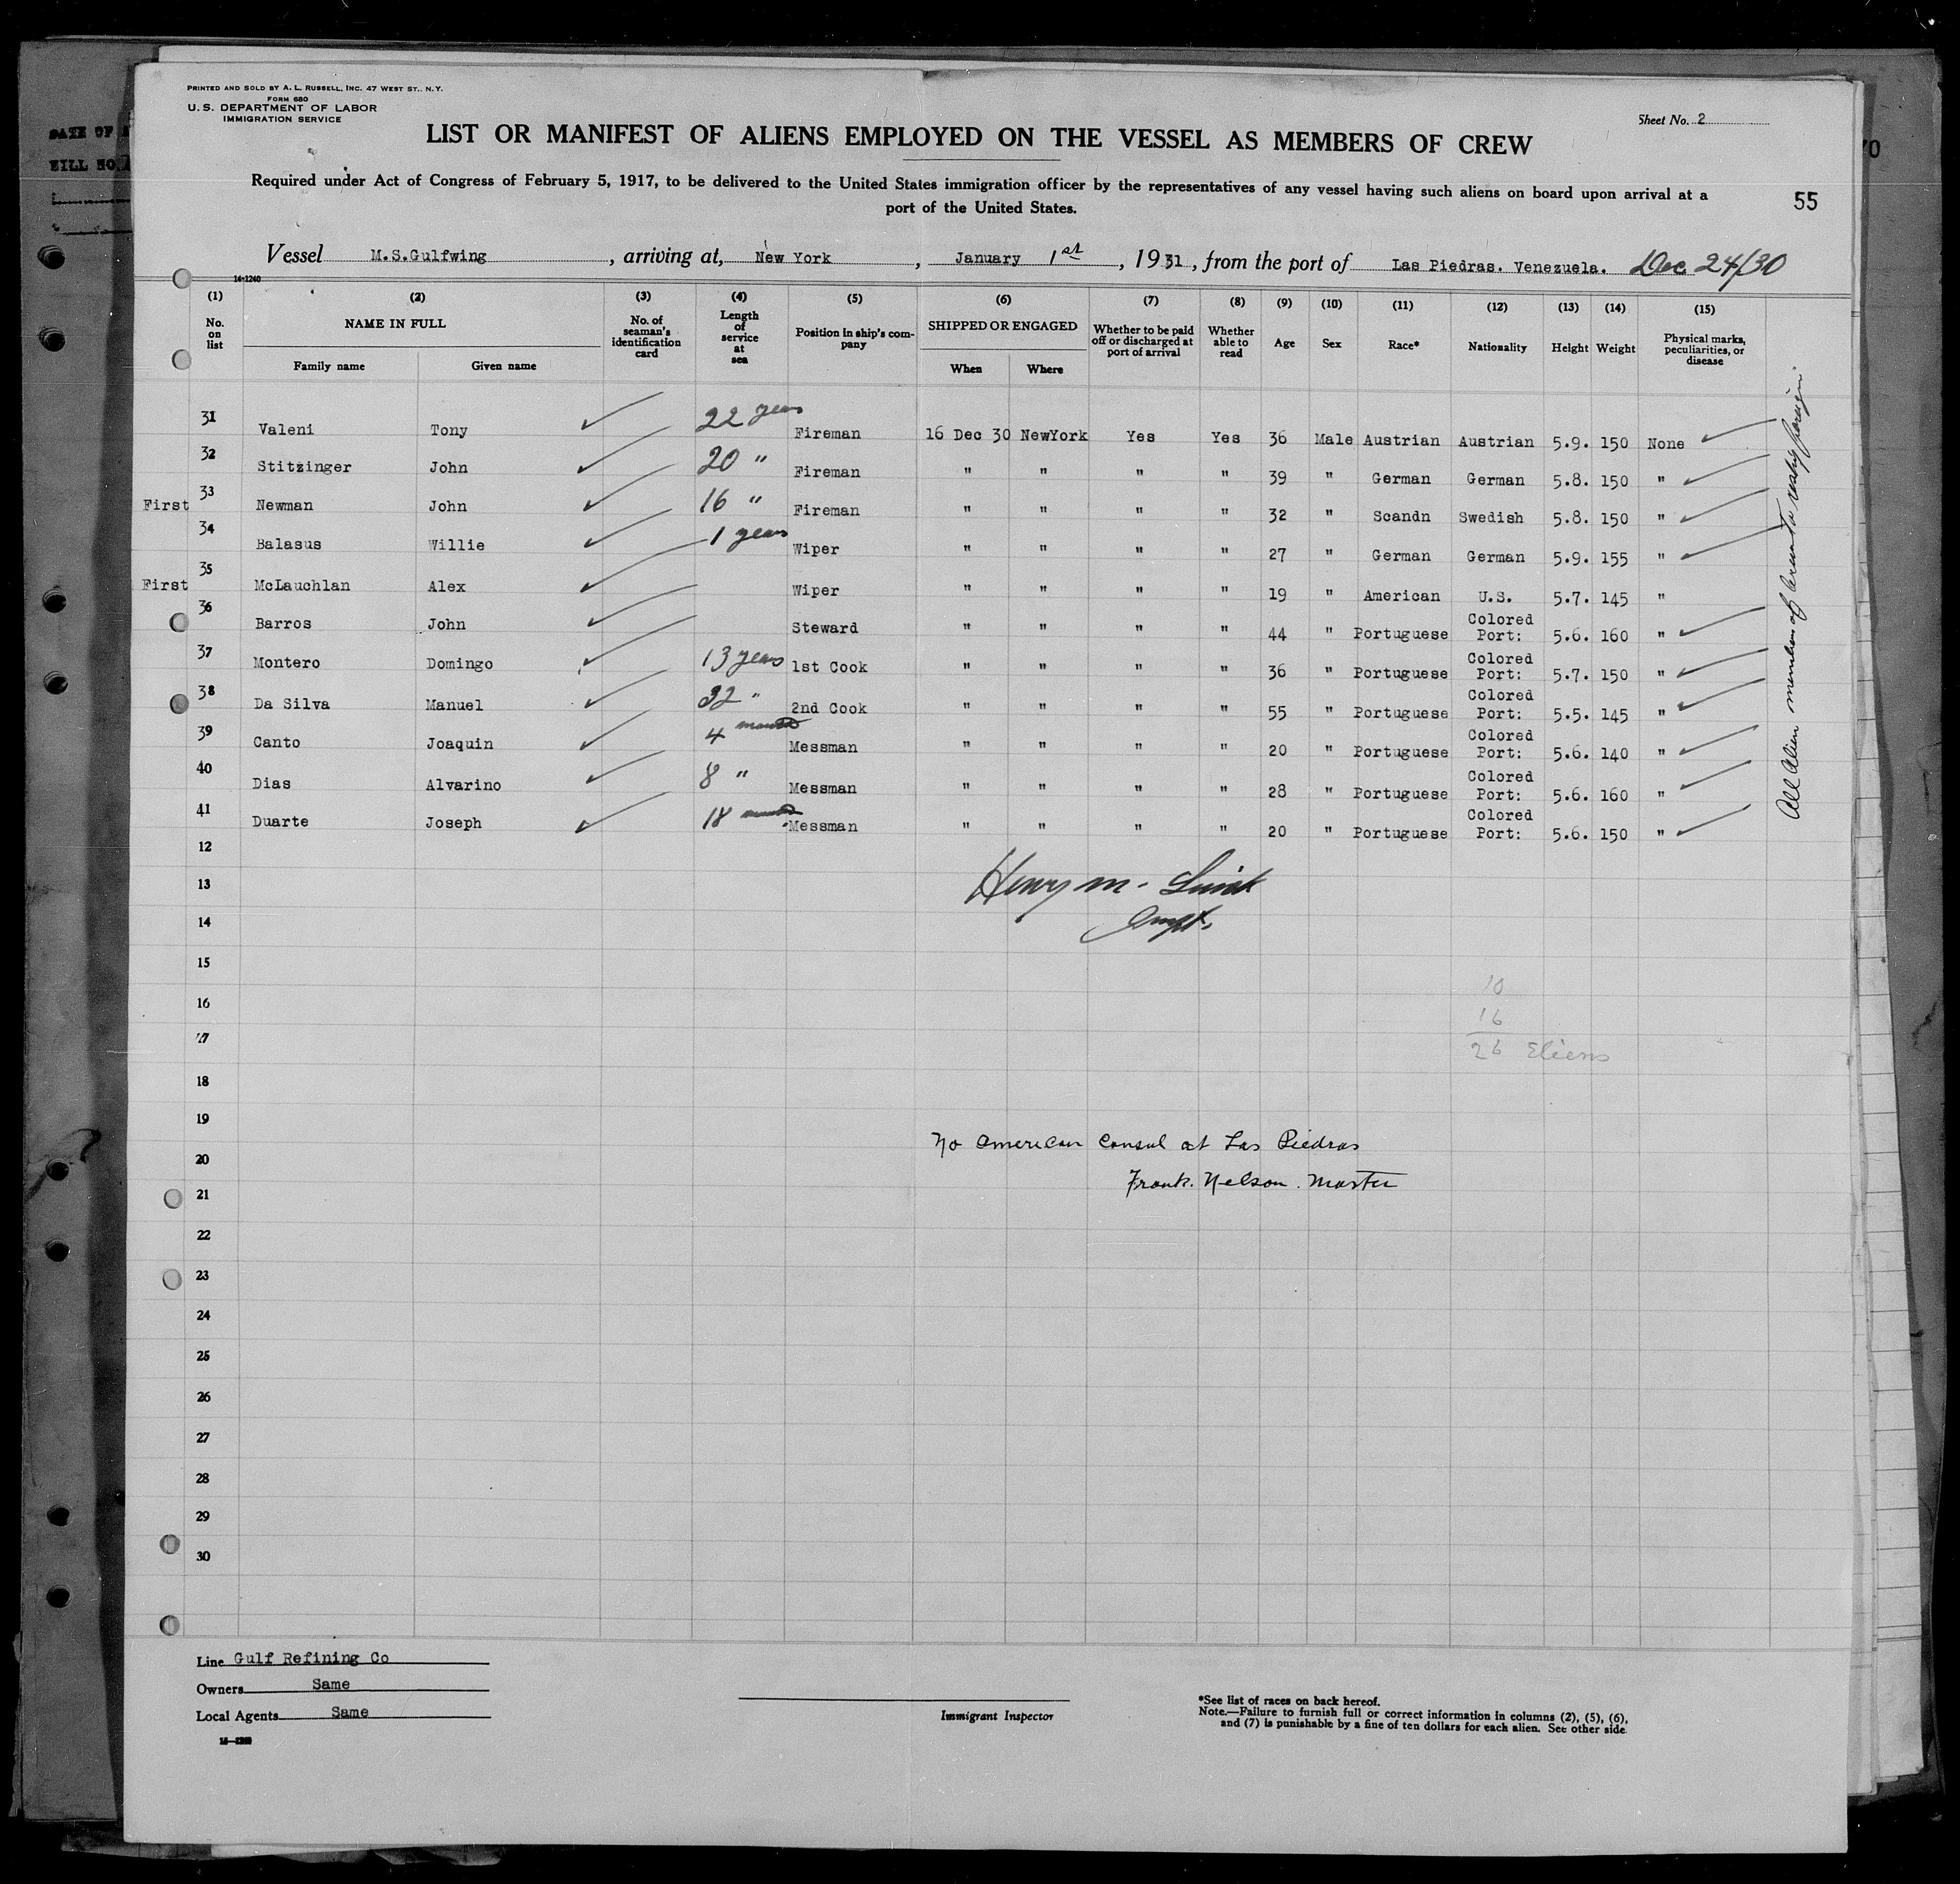 PRINTED AND SOLD BY A. L. RUSSELL, INC. 47 WEST ST., N.Y.
FORM 680
U. S. DEPARTMENT OF LABOR
IMMIGRATION SERVICE
Sheet No. 2
LIST OR MANIFEST OF ALIENS EMPLOYED ON THE VESSEL AS MEMBERS OF CREW
Required under Act of Congress of February 5, 1917, to be delivered to the United States immigration officer by the representatives of any vessel having such aliens on board upon arrival at a
port of the United States.
55
Vessel M.S.Gulfwing, arriving at, New York, January 1st, 1931, from the port of Las Piedras. Venezuela. Dec 24/30
14-1240
(1) (2) (3) (4) (5) (6) (7) (8) (9) (10) (11) (12) (13) (14) (15)
No. on list NAME IN FULL No. of seaman's identification card Length of service at sea Position in ship's company SHIPPED OR ENGAGED Whether to be paid off or discharged at port of arrival Whether able to read Age Sex Race* Nationality Height Weight Physical marks, peculiarities, or disease
Family name Given name When Where
31 Valeni Tony 22 years Fireman 16 Dec 30 NewYork Yes Yes 36 Male Austrian Austrian 5.9. 150 None
32 Stitzinger John 20 " Fireman " " " " 39 " German German 5.8. 150 "
First 33 Newman John 16 " Fireman " " " " 32 " Scandn Swedish 5.8. 150 "
34 Balasus Willie 1 years Wiper " " " " 27 " German German 5.9. 155 "
First 35 McLauchlan Alex Wiper " " " " 19 " American U.S. 5.7. 145 "
36 Barros John Steward " " " " 44 " Portuguese Colored Port: 5.6. 160 "
37 Montero Domingo 13 years 1st Cook " " " " 36 " Portuguese Colored Port: 5.7. 150 "
38 Da Silva Manuel 32 " 2nd Cook " " " " 55 " Portuguese Colored Port: 5.5. 145 "
39 Canto Joaquin 4 months Messman " " " " 20 " Portuguese Colored Port: 5.6. 140 "
40 Dias Alvarino 8 " Messman " " " " 28 " Portuguese Colored Port: 5.6. 160 "
41 Duarte Joseph 18 months Messman " " " " 20 " Portuguese Colored Port: 5.6. 150 "
All Alien members of crew to reship foreign
12
13 Henry M.
14
15
16 10
16
17 26 Eliens
18
19
No American Consul at Las Piedras
20
Frank. Nelson. Master
21
22
23
24
25
26
27
28
29
30
Line Gulf Refining Co
Owners Same
Local Agents Same
Immigrant Inspector
*See list of races on back hereof.
Note.—Failure to furnish full or correct information in columns (2), (5), (6),
and (7) is punishable by a fine of ten dollars for each alien. See other side.